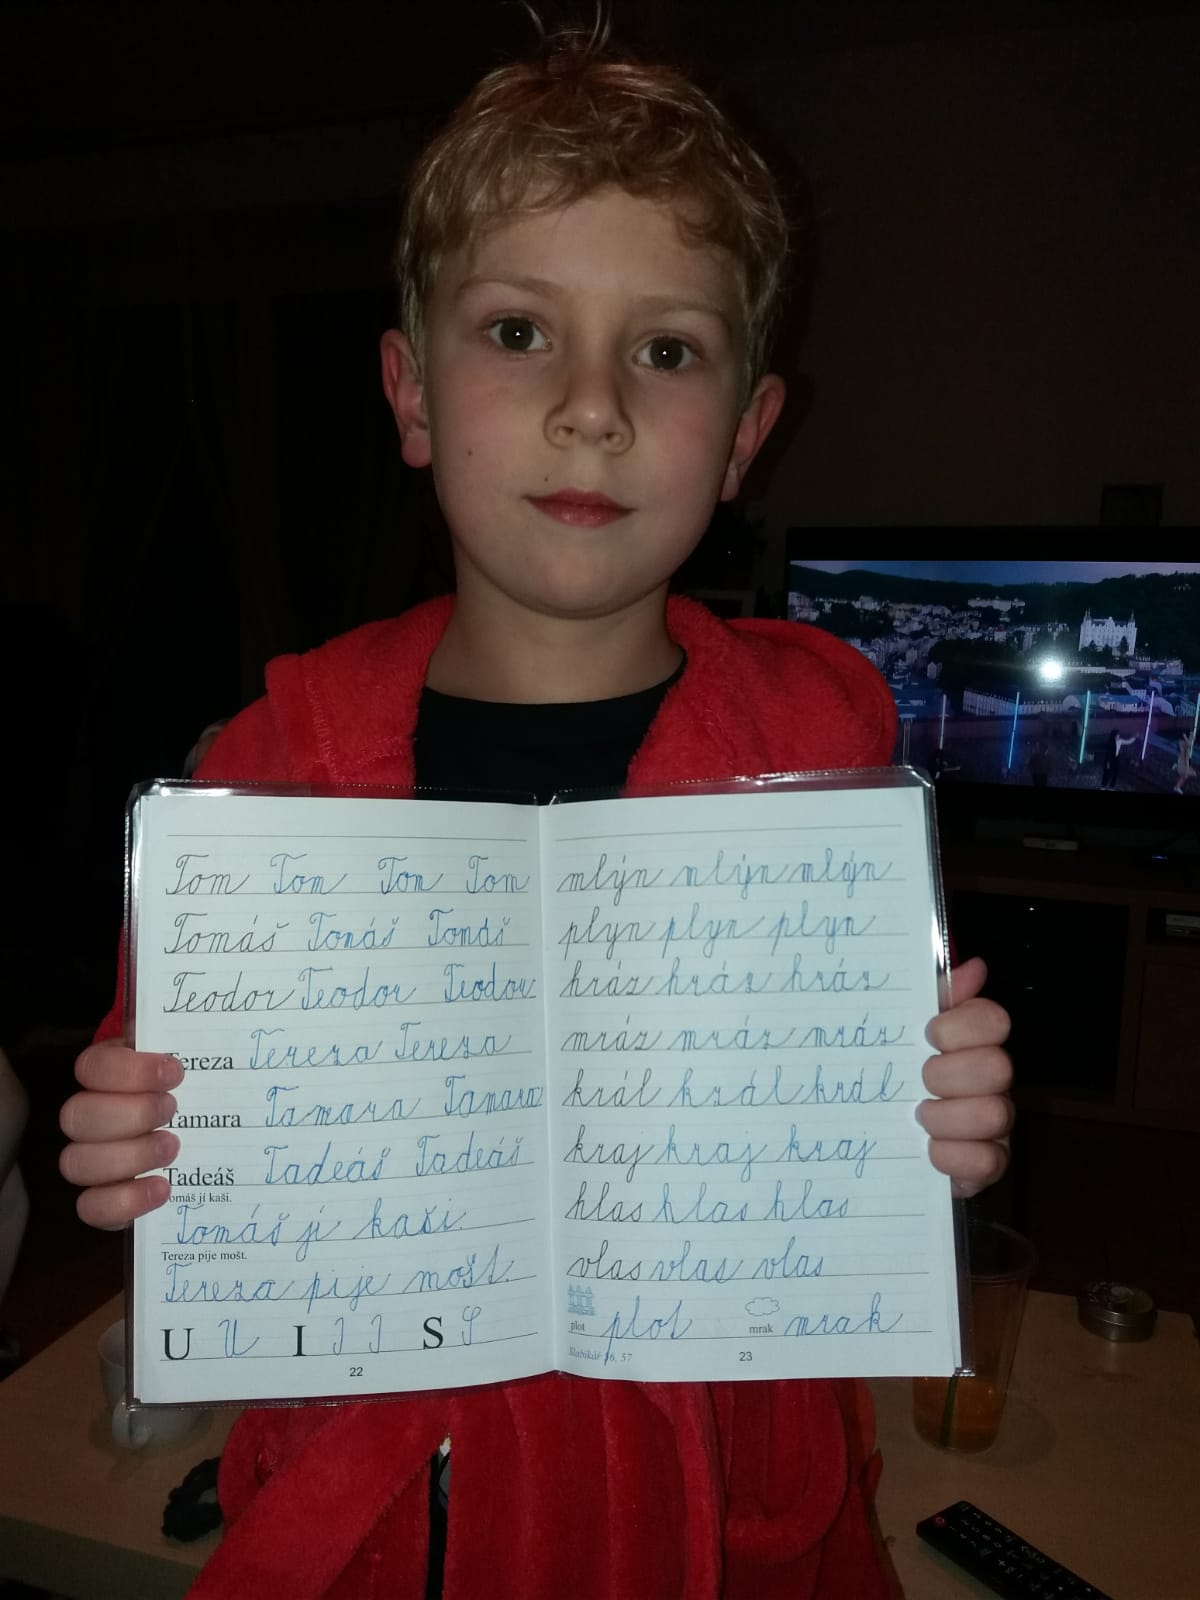 Tom Tom Tom Tom
Tomáš Tomáš Tomáš
Teodor Teodor Teodor
Tereza Tereza Tereza
Tamara Tamara Tamara
Tadeáš Tadeáš Tadeáš
Tomáš jí kaši.
Tomáš jí kaši.
Tereza pije mošt.
Tereza pije mošt.
U U I I I S S
22
mlýn mlýn mlýn
plyn plyn plyn
hráz hráz hráz
mráz mráz mráz
král král král
kraj kraj kraj
hlas hlas hlas
vlas vlas vlas
plot plot mrak mrak
Slabikář 56, 57
23